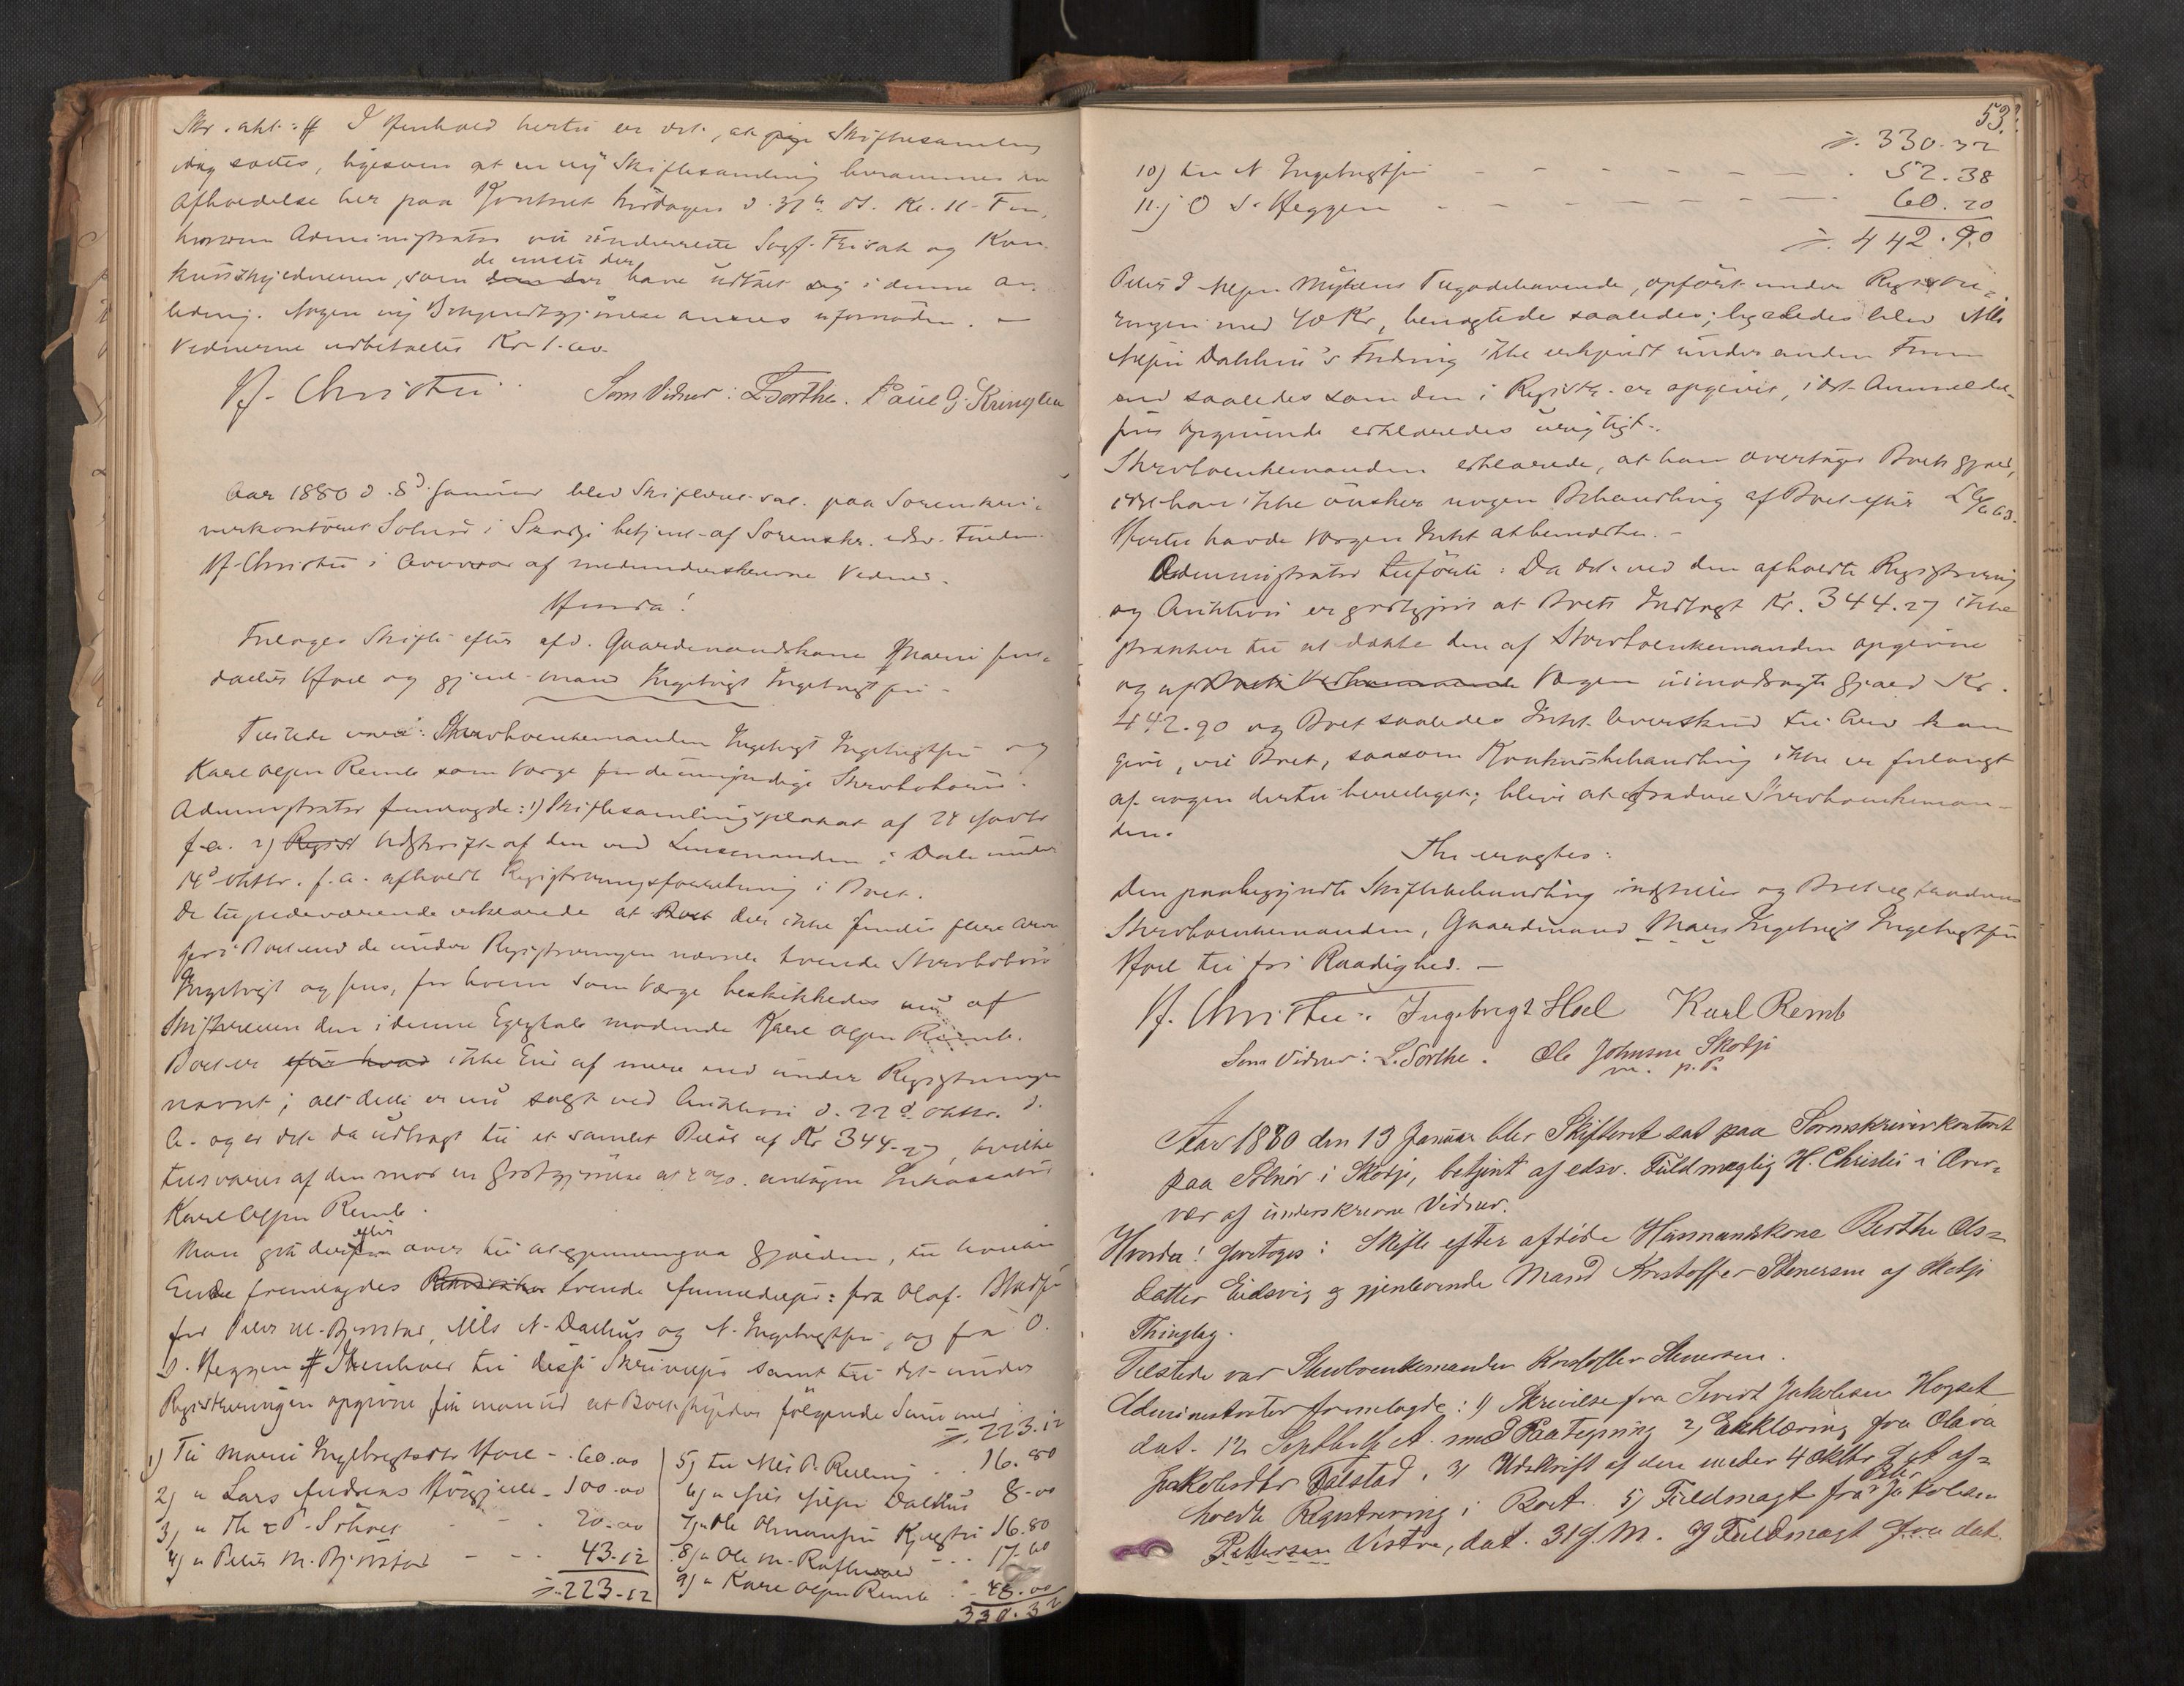 Skr. akt. # I Henhold hertil er det, at ny Skiftesamling
idag sattes, ligesom at en ny Skiftesamling berammes til
Afholdelse her paa Kontoret Lørdagen d. 31te ds. Kl. 11 Fm,
hvorom Administrator vil underrette Sagf. Frisak og Kon-
de unntt. der
kursskyldneren, som have udtalt sig i denne An-
ledning. Nogen ny Bekjendtgjørelse ansees ufornøden. —
Vidnerne udbetaltes Kr. 1.00.
H. Christie Som Vidner: L. Torthe. Paul G. Kringlen
Aar 1880 d. 8d Januar blev Skifteret sat paa Sorenskri-
verkontoret Solnør i Skodje betjent af Sorenskr. edsv. Fuldm.
H. Christie i Overvær af medunderskrevne Vidner.
Hvorda!
Foretoges Skifte efter afd. Gaardmandskone Marie Jens-
datter Hoel og gjenl. Mand Ingebrigt Ingebrigtsen
Tilstede vare: Stervboenkemanden Ingebrigt Ingebrigtsen og
Karl Olsen Remb som Værge for de umyndige Stervbobørn.
Administrator fremlagde: 1) Skiftesamlingsplakat af 24
f. A. 2) Regist Udskrift af den ved Lensmanden i Dale under
14d Oktbr. f. A. afholdt Registreringsforretning i Boet.
De tilstedeværende erklærede at Boet der ikke findes flere Arvin-
ger i Boet end de under Registreringen nævnte tvende Stervbobørn
Ingebrigt og Jens, for hvem som Værge beskikkedes nu af
Skifteretten den i denne Egenskab mødende Karl Olsen Remb.
Boet er efter hvad ikke Eier af mere end under Registreringen
nævnt; alt dette er nu solgt ved Auktion d. 22d Oktbr. f.
A. og er det da udbragt til et samlet Beløb af Kr 344.27, hvilke
tilsvares af den mod en Godtgjørelse af antagne Inkassator
Karl Olsen Remb.
efter
Man gik derpaa over til at gjennemgaa Gjælden, til hvilken
Ende fremlagdes tvende Anmeldelser: fra Olaf
for Peter M. Bjørstad, Nils N. Dalhus og N. Ingebrigtsen, og fra O.
S. Heggen # I Henhold til disse Skrivelser samt til det under
Registreringen opgivne fik man ud at Boet skylder følgende Summer
1) Til Marie Ingebrigtsdtr Hoel - 60.00
2) " Lars Andreas - 100.00
3) " Th & P. - - 20.00
4) " Peter M. Bjørstad - - 43.12
÷ 223.12
÷ 223.12
5) til Nils P. - - 16.80
6) " Nils Nilsen Dalhus 8.00
7) " Ole 16.80
8) " Ole M. - - 17.60
9) " Karl Olsen Remb - 48.00
330.32
53.
÷ 330.32
10) til N. Ingebrigtsen - - - - - - - 52.38
11) " O. S. Heggen - - - - - - - 60.20
÷ 442.90
Peter J. Tilgodehavende, opført under Registre-
ringen med 40 Kr, benegtedes saaledes; ligeledes blev Nils
Nilsen Dalhus's Fordring ikke erkjendt under anden Form
end saaledes som den i Registr. er opgivet, idet Anmeldel-
sens Opgivende erklæredes urigtigt.
Stervboenkemanden erklærede, at han overtager Boets Gjæld,
idet han ikke ønsker nogen Behandling af Boet efter
Hertil havde Værgen Intet at bemærke. -
Administrator tilførte: Da det ved den afholdte Registrering
og Auktion er godtgjort at Boets Indtægt Kr. 344.27 ikke
strækker til at dække den af Stervboenkemanden opgivne
og af Værgen uimodsagte Gjæld Kr.
442.90 og Boet saaledes Intet Overskud til Arv kan
give, vil Boet, saasom Konkursbehandling ikke er forlangt
af nogen dertil berettiget, blive at extradere Stervboenkeman-
den.
Thi eragtes:
Den paabegyndte Skiftebehandling indstilles og Boet extraderes
Stervboenkemanden, Gaardmand Ingebrigt Ingebrigtsen
Hoel til fri Raadighed. —
H. Christie. Ingebregt Hoel Karl Remb
Som Vidner: L. Torthe. Ole Johnsen Skodje
m. p. P.
Aar 1880 den 13 Januar blev Skifteret sat paa Sorenskriverkontoret
paa Solnør i Skodje, betjent af edsv. Fuldmægtig H. Christie i Over-
vær af underskrevne Vidner.
Hvorda! foretoges: Skifte efter afdøde Husmandskone Berthe Ols-
datter Eidsvig og gjenlevende Mand Kristoffer Stenersen af Skodje
Thinglag.
Tilstede var Stervboenkemanden Kristoffer Stenersen.
Administrator fremlagde: 1) Skrivelse fra Sivert Jakobsen Hogset
dat. 12 Septbr f. A. med Paategning 2) Erklæring fra Olava
Jakobsdtr Talstad. 3) Udskrift af den under 4 Oktbr f. A. af-
Peter
holdte Registrering i Boet. 5) Fuldmagt fra Jakobsen
Pettersen Vistre, dat. 31 f. M. Fuldmagt fra dat.